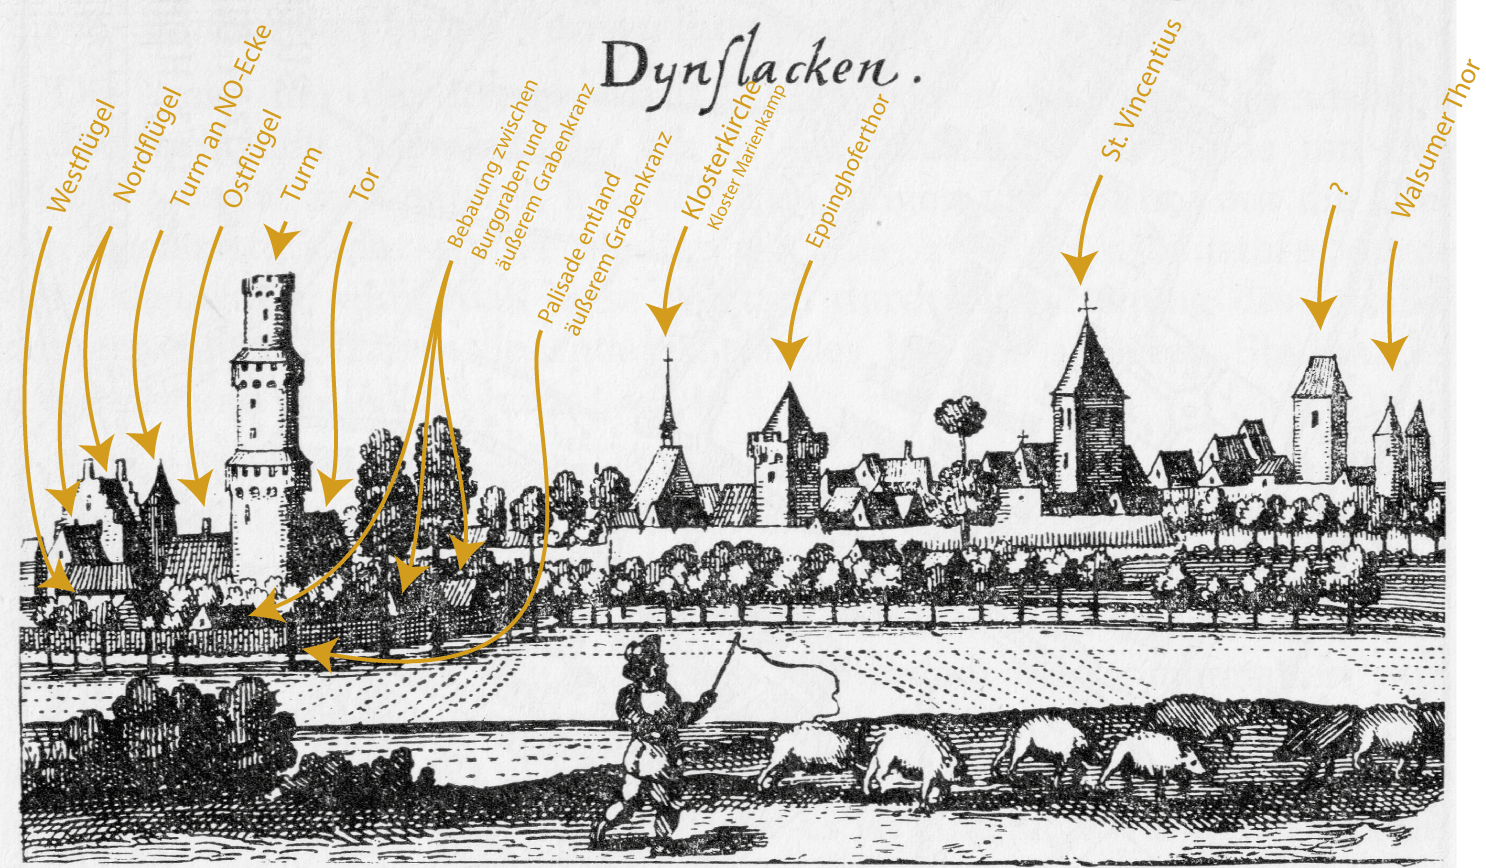 Dynſlacken.
Westflügel
Nordflügel
Turm an NO-Ecke
Ostflügel
Turm
Tor
Bebauung zwischen
Burggraben und
äußerem Grabenkranz
Palisade entland
äußerem Grabenkranz
Klosterkirche
Kloster Marienkamp
Eppinghoferthor
St. Vincentius
?
Walsumer Thor